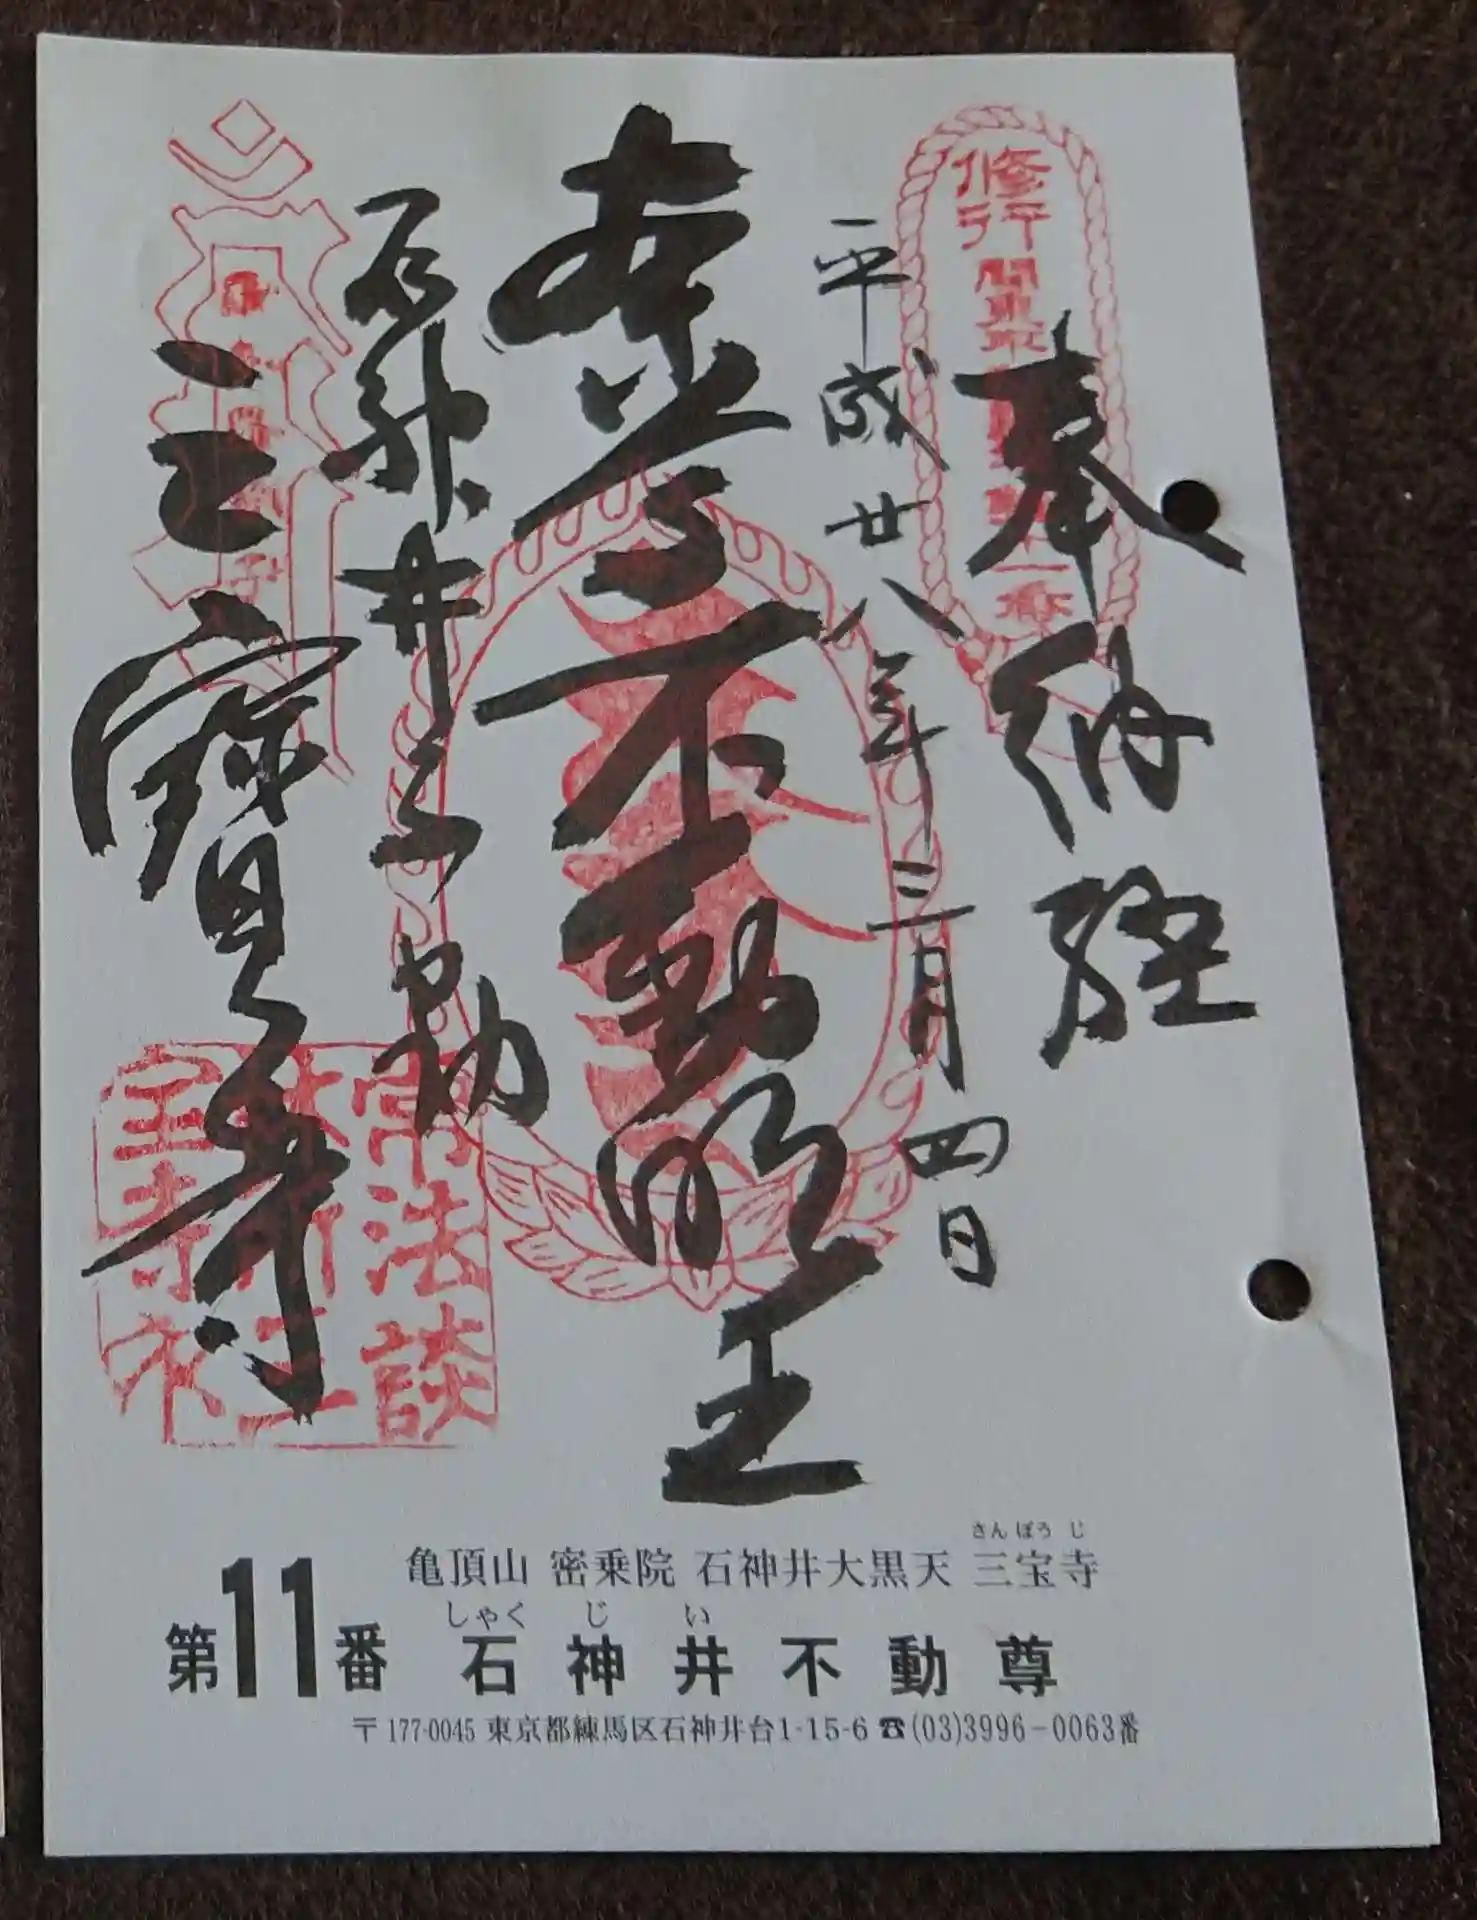 奉納経
修行
平成廿八年三月四日
不動明王
石神井不動
三寳寺
常法談
亀頂山 密乗院 石神井大黒天 三宝寺
さんぽうじ
第11番 石神井不動尊
しゃくじい
〒177-0045 東京都練馬区石神井台1-15-6 ☎(03)3996-0063番